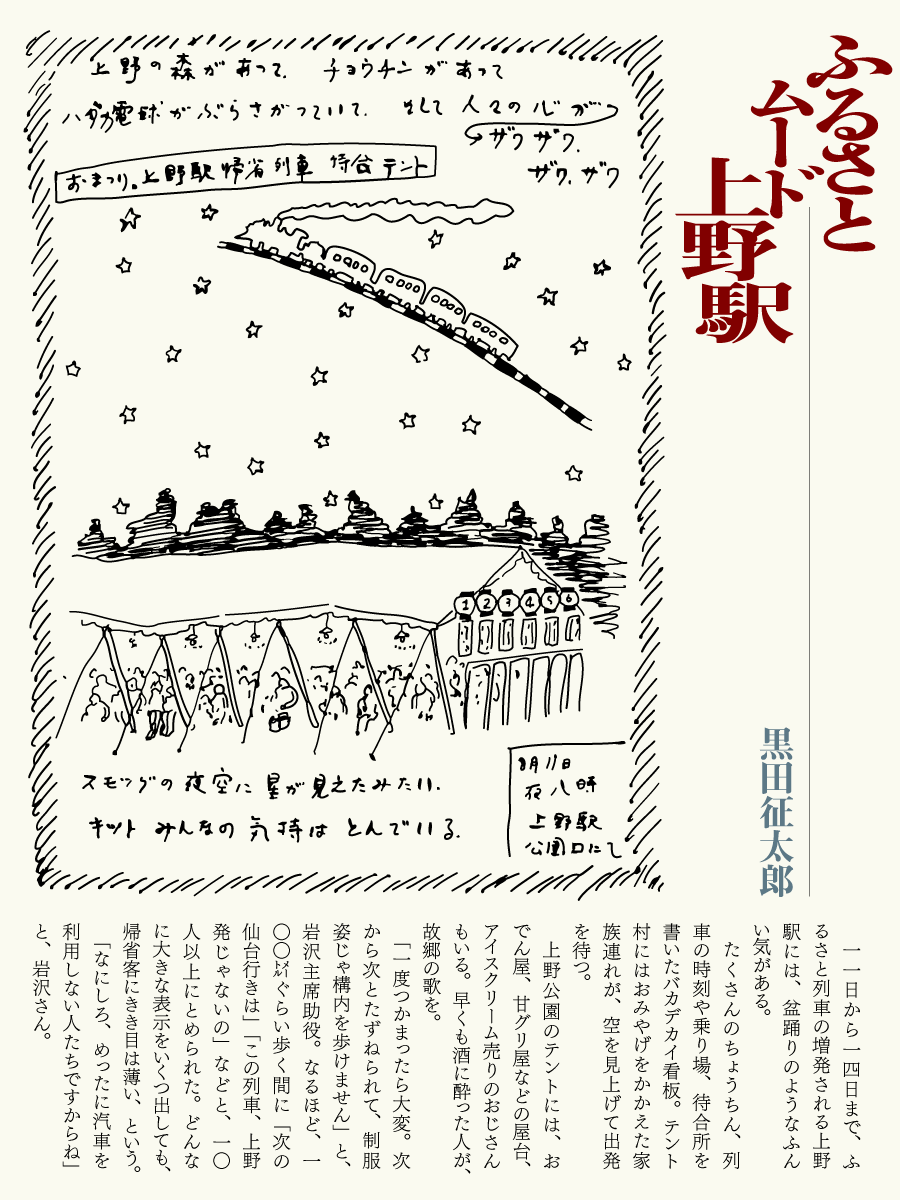 ふるさと
ムード
上野駅
黒田征太郎
上野の森があって、チョウチンがあって
ハダカ電球がぶらさがっていて、そして人々の心が
ザワザワ、
ザワ、ザワ
おまつり。上野駅帰省列車 待合テント
1 2 3 4 5 6
スモッグの夜空に星が見えたみたい、
キット みんなの気持は とんでいる。
8月11日
夜八時
上野駅
公園口にて
一一日から一四日まで、ふ
るさと列車の増発される上野
駅には、盆踊りのようなふん
い気がある。
たくさんのちょうちん、列
車の時刻や乗り場、待合所を
書いたバカデカイ看板。テント
村にはおみやげをかかえた家
族連れが、空を見上げて出発
を待つ。
上野公園のテントには、お
でん屋、甘グリ屋などの屋台、
アイスクリーム売りのおじさん
もいる。早くも酒に酔った人が、
故郷の歌を。
「一度つかまったら大変。次
から次とたずねられて、制服
姿じゃ構内を歩けません」と、
岩沢主席助役。なるほど、一
〇〇㍍ぐらい歩く間に「次の
仙台行きは」「この列車、上野
発じゃないの」などと、一〇
人以上にとめられた。どんな
に大きな表示をいくつ出しても、
帰省客にきき目は薄い、という。
「なにしろ、めったに汽車を
利用しない人たちですからね」
と、岩沢さん。